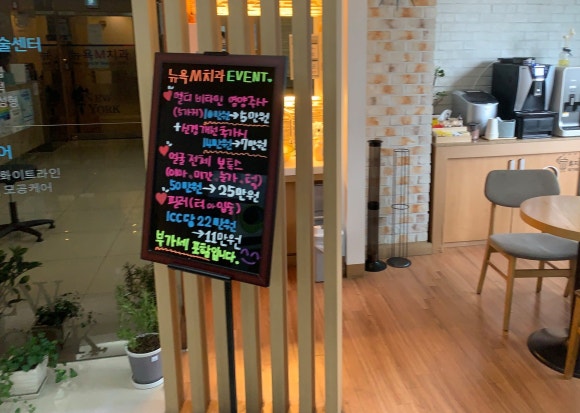 술센터
화이트라인
모공케어
뉴욕M치과 EVENT.
멀티 비타민 영양주사
(5가지) 10만원→5만원
14만원→7만원
얼굴 전체 보톡스
(이마, 미간, 눈가, 턱)
50만원→25만원
필러(터 or 입술)
1CC당 22만원
→11만원
부가세 포함입니다.